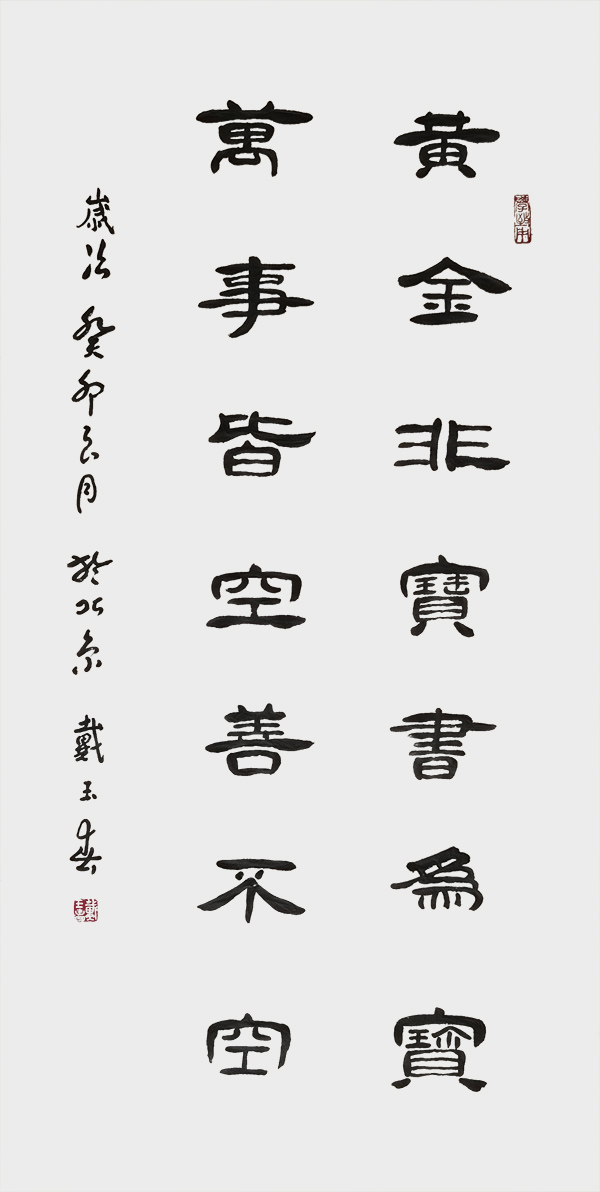 黃金非寶書為寶
萬事皆空善不空
歲次癸卯六月於北京戴玉春